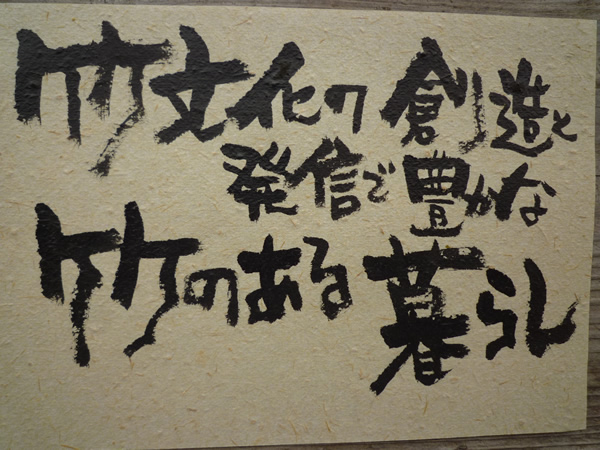 竹文化の創造と
発信で豊かな
竹のある暮らし